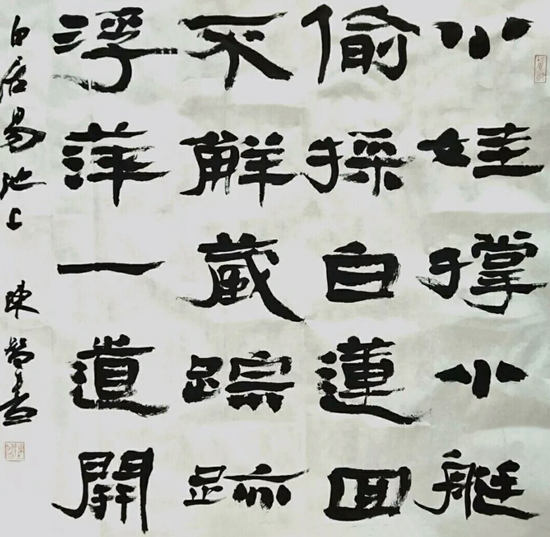 小娃撑小艇
偷採白蓮回
不解藏踪跡
浮萍一道開
白居易池上 陳